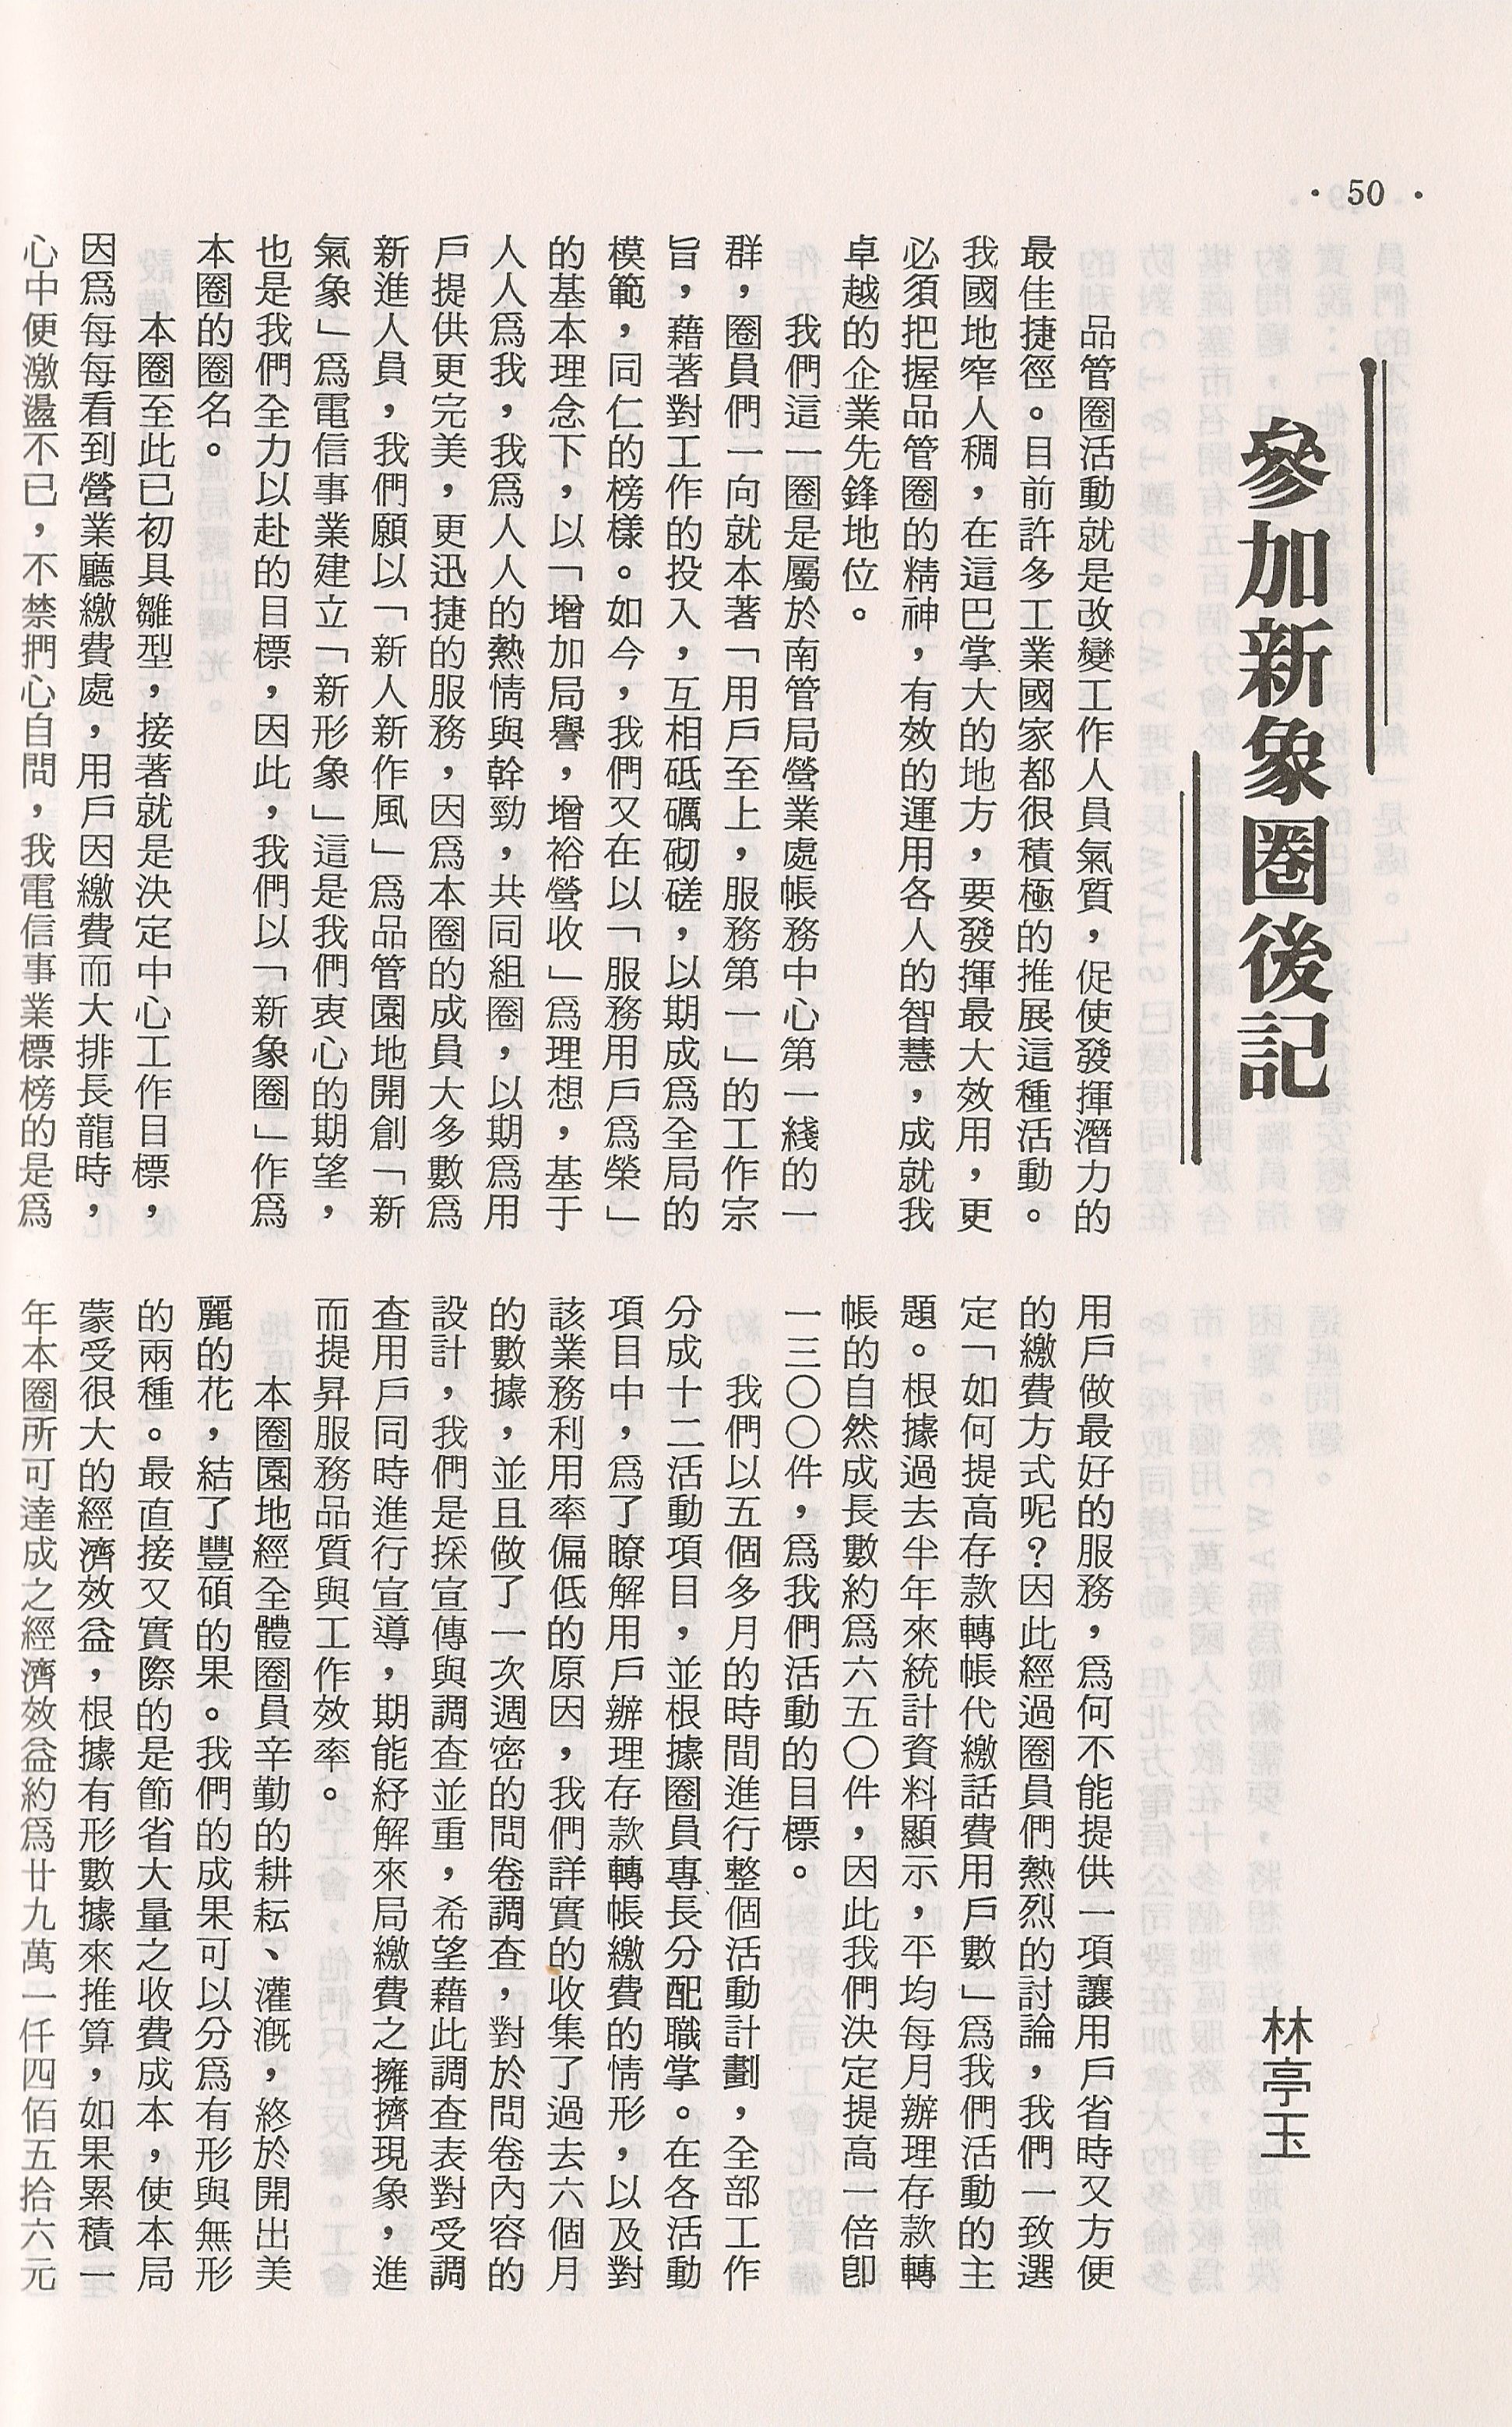 · 50 ·
參加新象圈後記
林亭玉
品管圈活動就是改變工作人員氣質，促使發揮潛力的
最佳捷徑。目前許多工業國家都很積極的推展這種活動。
我國地窄人稠，在這巴掌大的地方，要發揮最大效用，更
必須把握品管圈的精神，有效的運用各人的智慧，成就我
卓越的企業先鋒地位。
我們這一圈是屬於南管局營業處帳務中心第一綫的一
群，圈員們一向就本著「用戶至上，服務第一」的工作宗
旨，藉著對工作的投入，互相砥礪砌磋，以期成爲全局的
模範，同仁的榜樣。如今，我們又在以「服務用戶爲榮」
的基本理念下，以「增加局譽，增裕營收」爲理想，基于
人人爲我，我爲人人的熱情與幹勁，共同組圈，以期爲用
戶提供更完美，更迅捷的服務，因爲本圈的成員大多數爲
新進人員，我們願以「新人新作風」爲品管園地開創「新
氣象」爲電信事業建立「新形象」這是我們衷心的期望，
也是我們全力以赴的目標，因此，我們以「新象圈」作爲
本圈的圈名。
本圈至此已初具雛型，接著就是決定中心工作目標，
因爲每每看到營業廳繳費處，用戶因繳費而大排長龍時，
心中便激盪不已，不禁捫心自問，我電信事業標榜的是爲
用戶做最好的服務，爲何不能提供一項讓用戶省時又方便
的繳費方式呢？因此經過圈員們熱烈的討論，我們一致選
定「如何提高存款轉帳代繳話費用戶數」爲我們活動的主
題。根據過去半年來統計資料顯示，平均每月辦理存款轉
帳的自然成長數約爲六五〇件，因此我們決定提高一倍卽
一三〇〇件，爲我們活動的目標。
我們以五個多月的時間進行整個活動計劃，全部工作
分成十二活動項目，並根據圈員專長分配職掌。在各活動
項目中，爲了瞭解用戶辦理存款轉帳繳費的情形，以及對
該業務利用率偏低的原因，我們詳實的收集了過去六個月
的數據，並且做了一次週密的問卷調查，對於問卷內容的
設計，我們是採宣傳與調查並重，希望藉此調查表對受調
查用戶同時進行宣導，期能紓解來局繳費之擁擠現象，進
而提昇服務品質與工作效率。
本圈園地經全體圈員辛勤的耕耘、灌溉，終於開出美
麗的花，結了豐碩的果。我們的成果可以分爲有形與無形
的兩種。最直接又實際的是節省大量之收費成本，使本局
蒙受很大的經濟效益，根據有形數據來推算，如果累積一
年本圈所可達成之經濟效益約爲廿九萬一仟四佰五拾六元